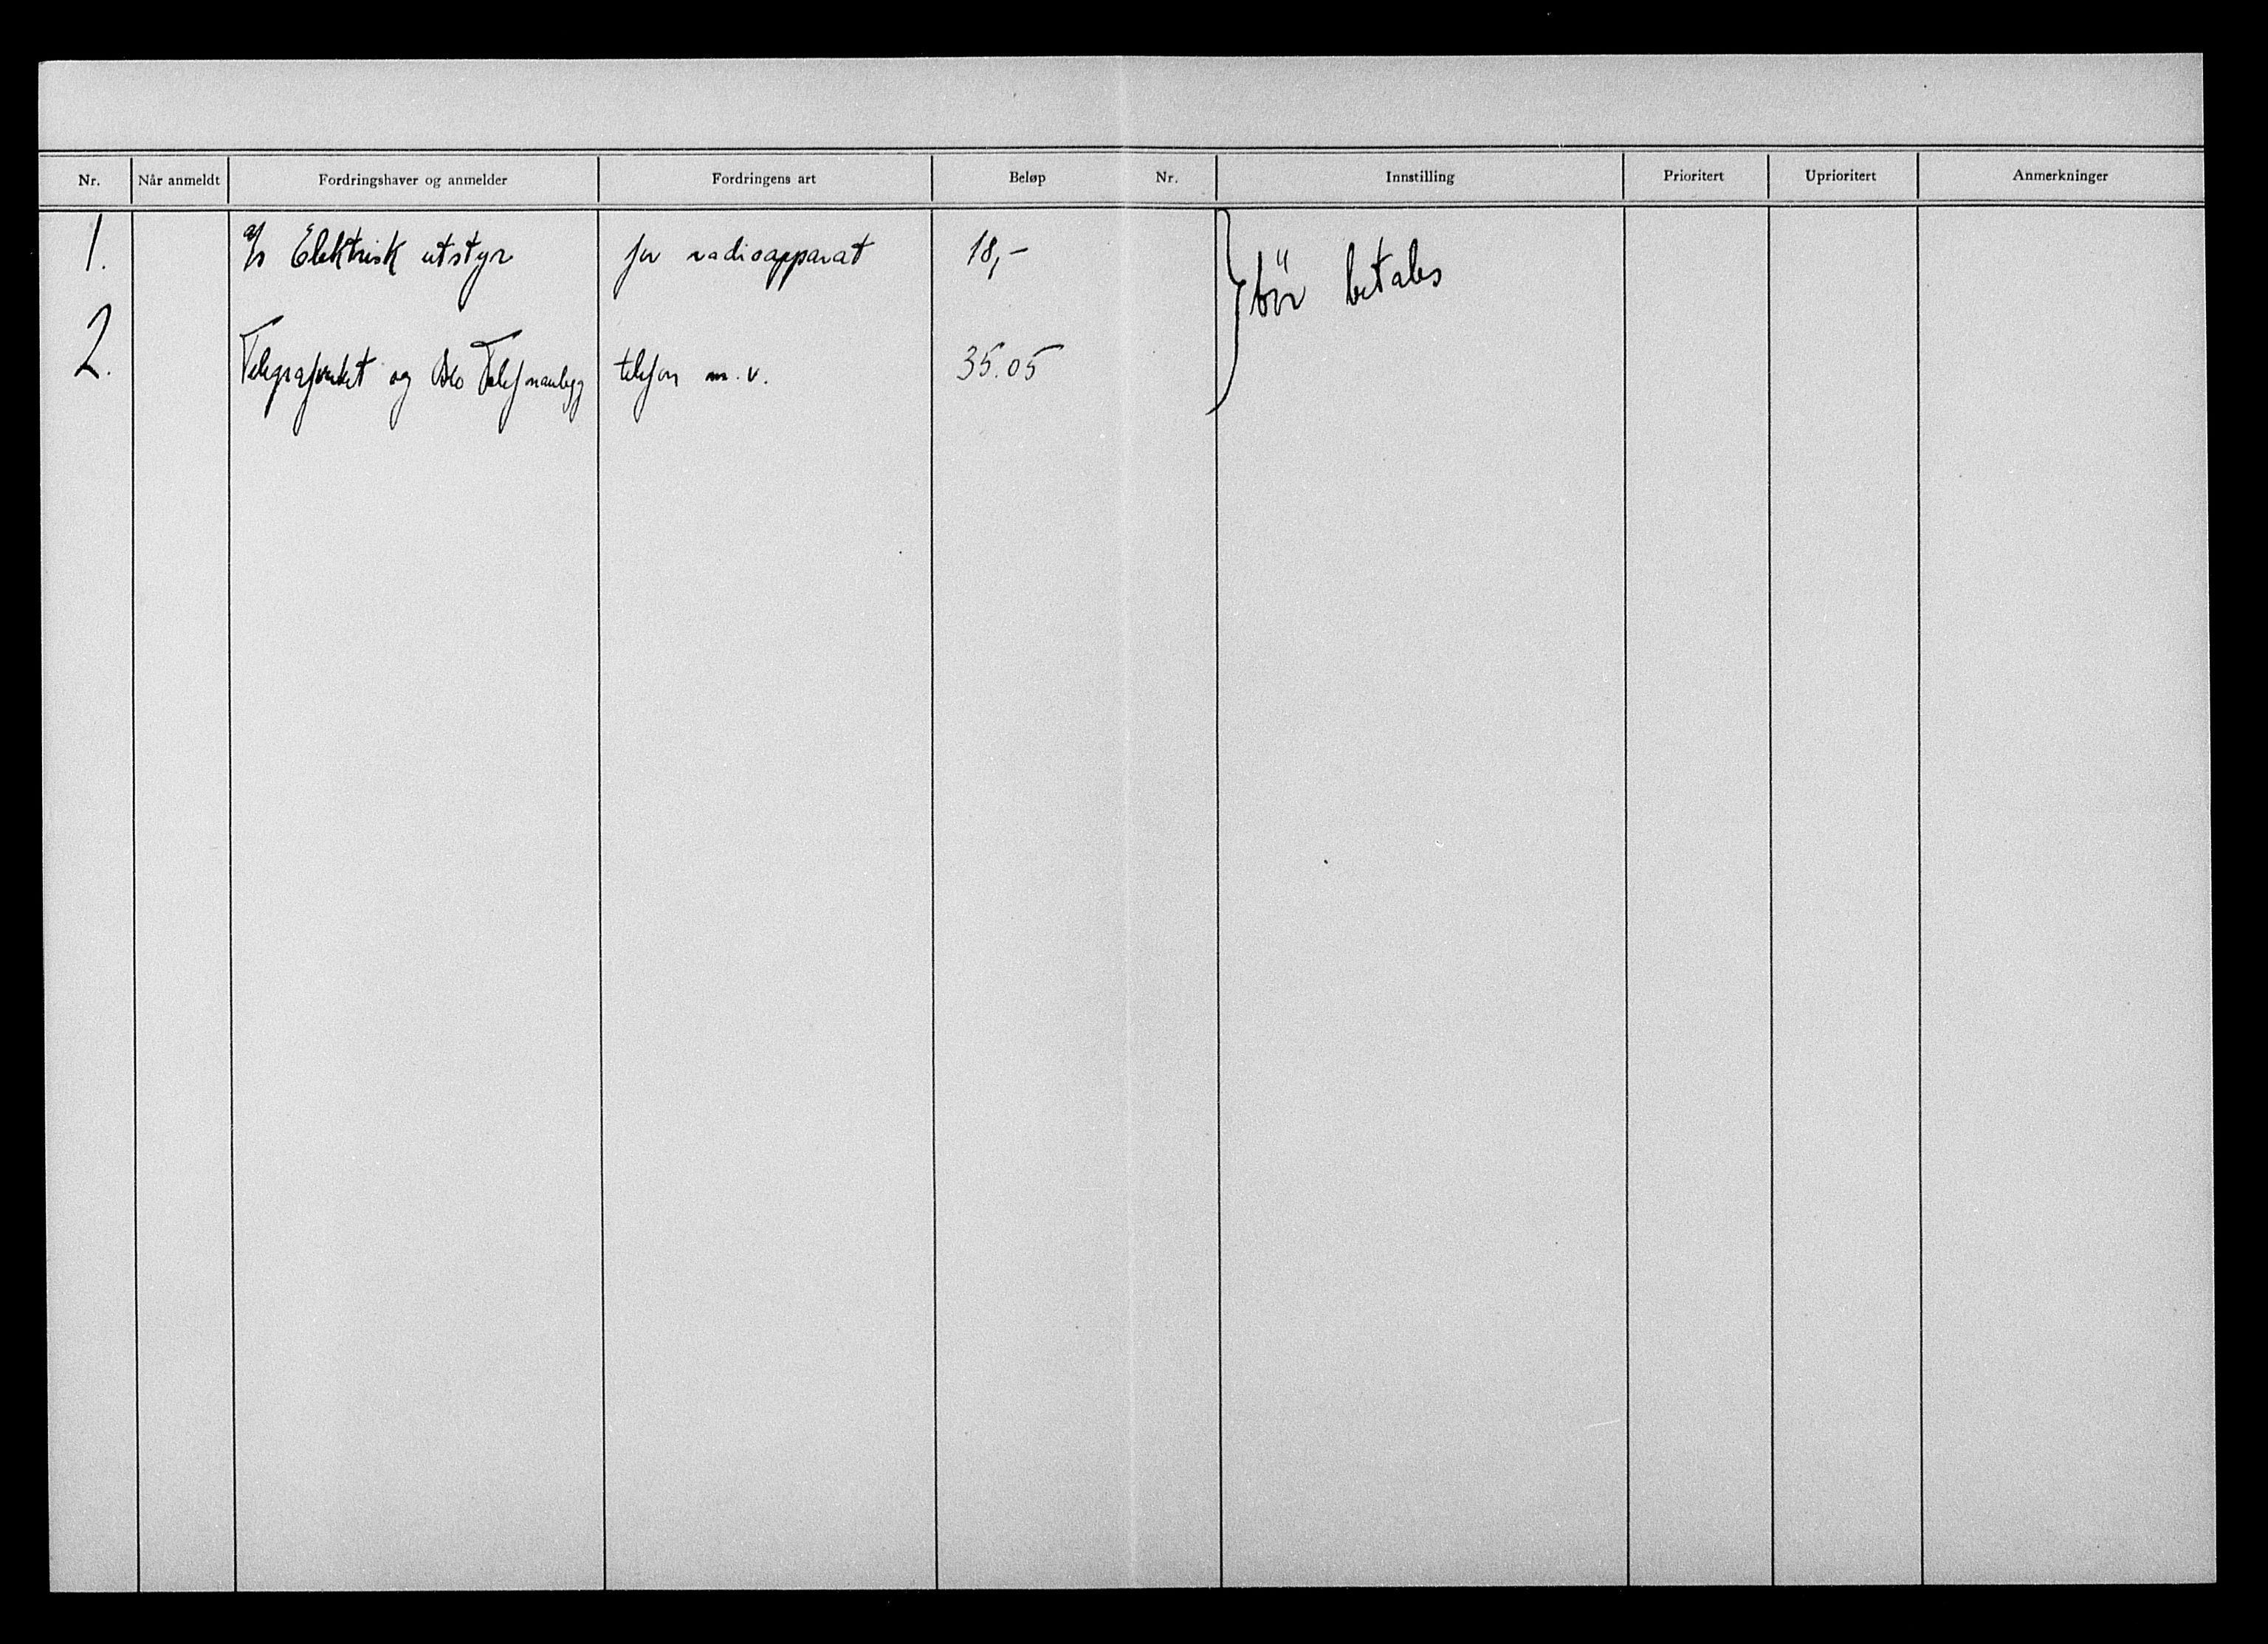 Nr. Når anmeldt Fordringshaver og anmelder Fordringens art Beløp Nr. Innstilling Prioritert Uprioritert Anmerkninger
1. A/s Elektrisk utstyr for radioapparat 18,-
bör betales
2. Telegrafverket og Oslo Telefonanlegg telefon m.v. 35.05